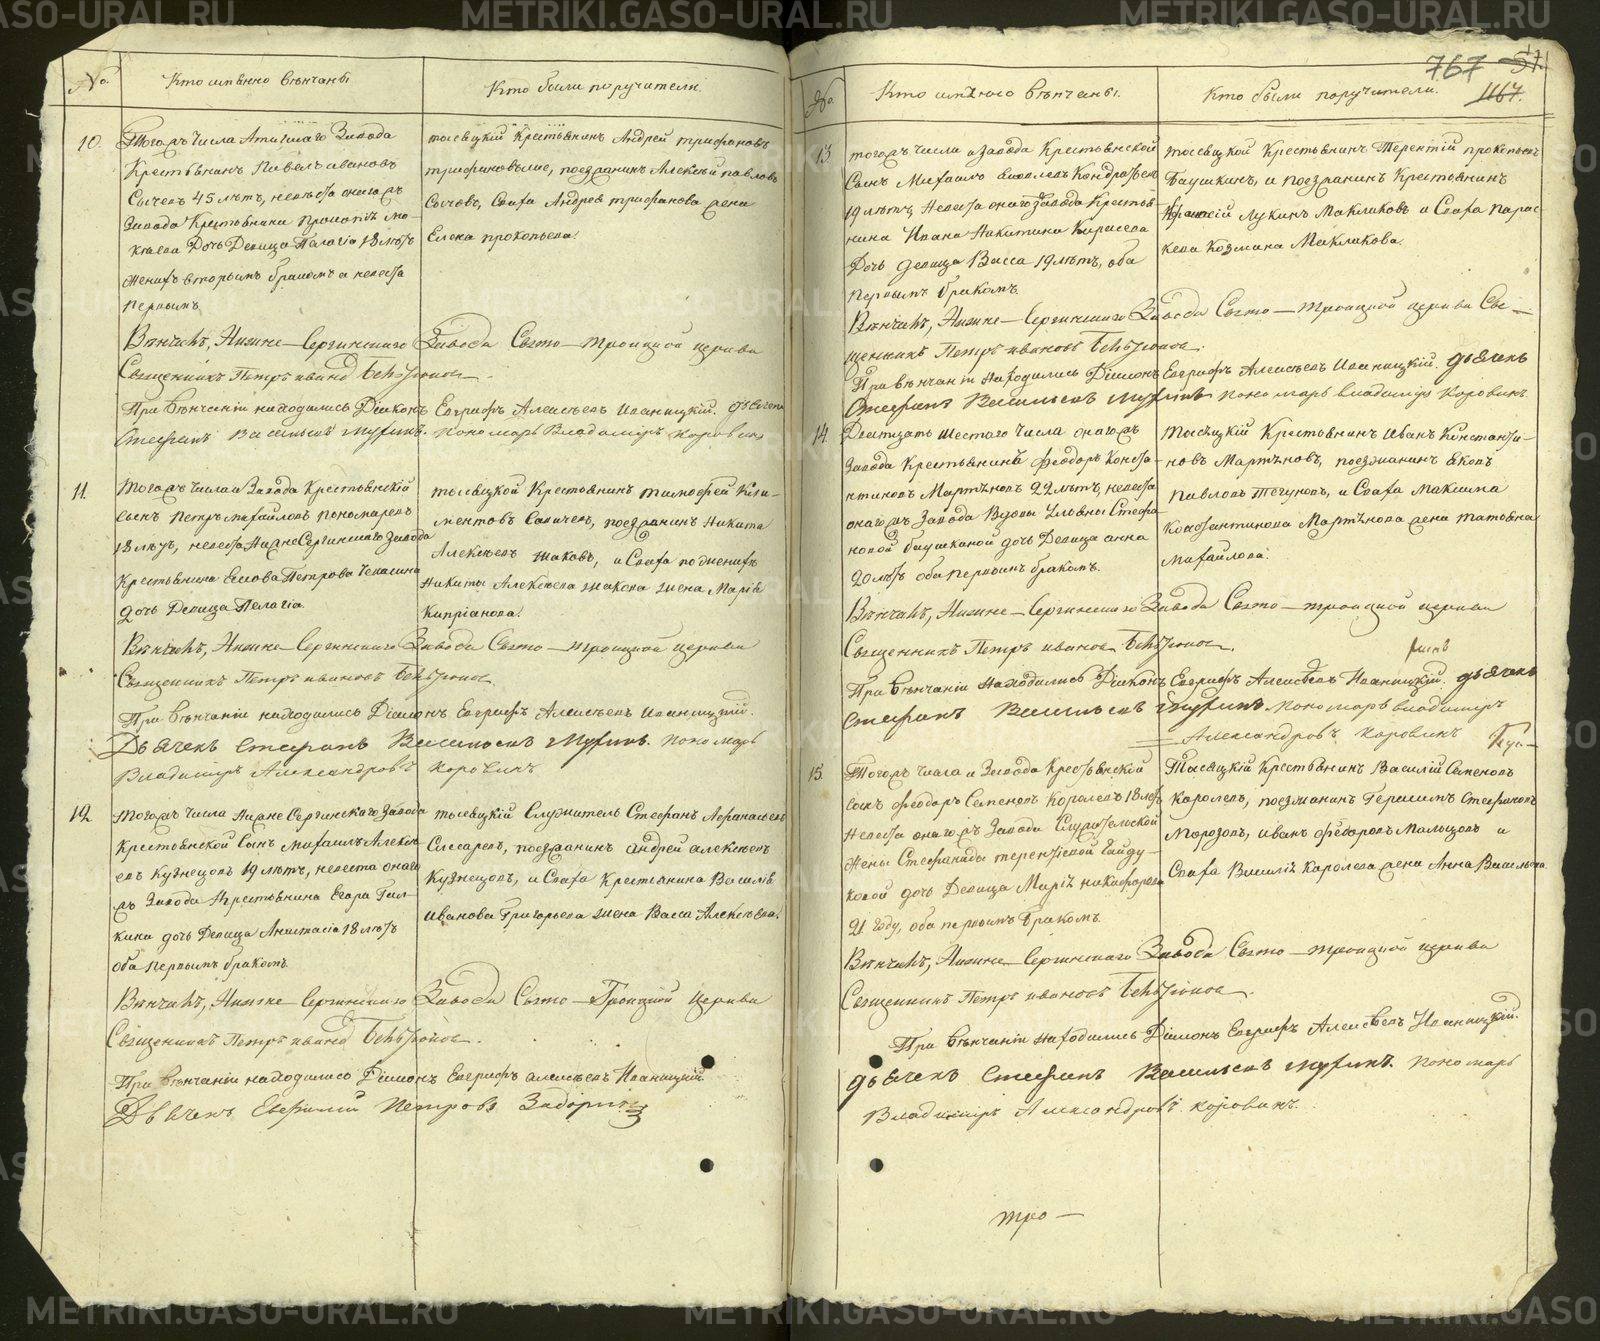 №
Кто имѣнно вѣнчаны
Кто были поручители.
10.
Тогожъ Числа Атигскаго Завода
Крестьянинъ Павелъ ивановъ
Сычевъ 45 лѣтъ, невѣста онагожъ
Завода Крестьянина
Дочь Девица Пелагiя 18 лѣтъ
Женихъ вторымъ бракомъ а невеста
первымъ
тысяцкiй Крестьянинъ Андрей трифановъ
поезжанинъ Алексей павловъ
Сычовъ, Сваха Андрея трифанова жена
Елена прокопьева.
Вѣнчалъ, Нижне-Сергинскаго Завода Свято-троицкой церкви
Священникъ Петръ иванов
При вѣнчанiи находились Дiаконъ Евграфъ Алексѣевъ Иваницкiй. дьячекъ
Стефанъ Васильевъ пономарь Владимiръ Коровинъ
11.
Тогожъ Числа и Завода Крестьянскiй
сынъ Петръ михайловъ пономаревъ
18 лѣтъ, невеста НижнеСергинскаго Завода
Крестьянина Петрова
дочь Девица Пелагiя.
тысяцкой Крестьянинъ тимофей
поезжанинъ Никита
Алексѣевъ и Сваха
Никиты Алексѣева жена Марiя
Кипрiанова.
Вѣнчалъ, Нижне-Сергинскаго Завода Свято-троицкой церкви
Священникъ Петръ ивановъ
При вѣнчанiи находились Дiаконъ Евграфъ Алексѣевъ Иваницкiй.
Дьячекъ Стефанъ Васильевъ пономарь
Владимiръ Александровъ Коровинъ
12.
тогожъ Числа Нижне Сергинскаго Завода
Крестьянской Сынъ михаилъ Алексѣ-
евъ Кузнецовъ 19 лѣтъ, невеста онаго
жъ Завода Крестьянина Егора Гал-
кина дочь Девица Анастасiя 18 лѣтъ
оба первымъ бракомъ
тысяцкiй Служитель Стефанъ Афанасьевъ
Слесаревъ, поезжанинъ андрей алексѣевъ
Кузнецовъ, и Сваха Крестьянина Василiя
иванова Григорьева жена Васса Алексѣева.
Вѣнчалъ, Нижне-Сергинскаго Завода Свято-Троицкой Церкви
Священникъ Петръ иванов
При вѣнчанiи находились Дiаконъ Евграфъ алексѣевъ Иваницкiй
Дьячекъ Евфимiй Петровъ
767
1167.
№
Кто имѣнно вѣнчаны.
Кто были поручители.
13
тогожъ числа и Завода Крестьянской
Сынъ Михаилъ Яковлевъ Кондратьевъ
19 лѣтъ, Невеста онагожъ Завода Крестья-
нина Ивана Никитина Карасева
Дочь девица Васса 19 лѣтъ, оба
первымъ бракомъ.
тысяцкой Крестьянинъ Терентiй прокопьевъ
Баушкинъ, и поезжанинъ Крестьянинъ
Лукинъ Макликовъ и Сваха Парас-
кева Козмина Макликова.
Вѣнчалъ, Нижне-Сергинскаго Завода Свято-троицкой церкви Свя-
щенникъ Петръ ивановъ
При вѣнчанiи Находились Дiаконъ Евграфъ Алексѣевъ Иваницкiй. дьячекъ
Стефанъ Васильевъ пономарь владимiръ Коровинъ.
14.
Дватцать шестаго Числа онагожъ
Завода Крестьянинъ Феодоръ Конста-
нтиновъ Мартѣновъ 22 лѣтъ, невеста
онагожъ Завода Вдовы Стефа-
новой баушкиной дочь Девица анна
20 лѣтъ оба первымъ бракомъ.
Тысяцкiй Крестьянинъ иванъ Константи-
новъ Мартѣновъ, поезжанинъ Яковъ
Павловъ и Сваха Максима
Константинова Мартѣнова жена татьяна
михайлова.
Вѣнчалъ, Нижне-Сергинскаго Завода Свято-троицкой церкви
Священникъ Петръ иванов
При вѣнчанiи Находились Дiаконъ Евграфъ Алексѣевъ Иваницкiй. дьячекъ
Стефанъ Васильевъ пономарь владимiръ
Александровъ Коровинъ
15.
Тогожъ числа и Завода Крестьянской
сынъ Феодоръ Семеновъ Королевъ 18 лѣтъ
Невеста онагожъ Завода Служительской
Жены Стефаниды терентьевой Гайду-
ковой дочь Девица Марiя никифорова
21 году, оба первымъ бракомъ
Тысяцкiй Крестьянинъ Василiй Семеновъ
Королевъ, поезжанинъ Герасимъ Стефановъ
Морозовъ, иванъ Феодоровъ Мальцовъ и
Сваха Василiя Королева жена Анна Васильева
Вѣнчалъ, Нижне-Сергинскаго Завода Свято-троицкой церкви
Священникъ Петръ ивановъ
При вѣнчанiи находились Дiаконъ Евграфъ Алексѣевъ Иваницкiй.
дьячекъ Стефанъ Васильевъ пономарь
Владимiръ Александровъ Коровинъ.
тро-
METRIKI.GASO-URAL.RU